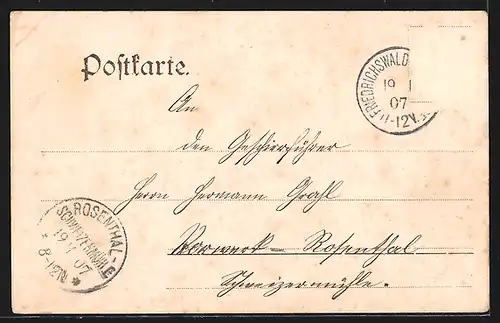 Postkarte.
FRIEDRICHSWALD
19 1
07
11-12V.
An
den Geschirrführer
Herrn Hermann Grahl
Vorwerk - Rosenthal
Schweizermühle.
ROSENTHAL-
SCHWEIZERMÜHLE
19 1 07
* 8-12N *